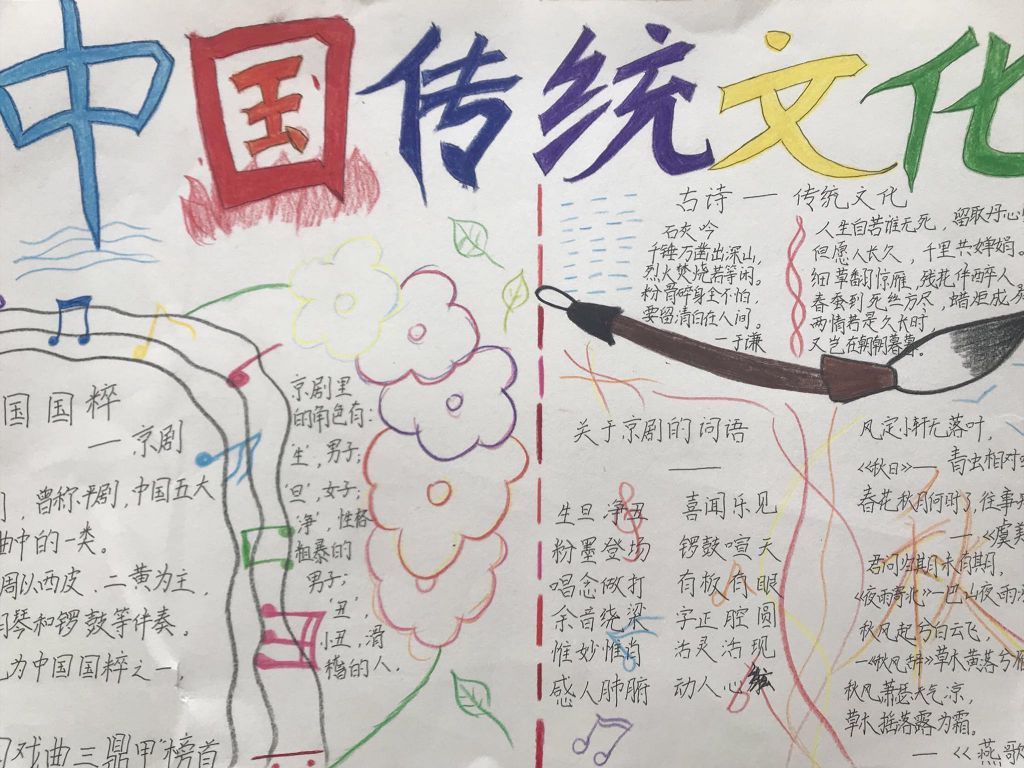 中国传统文化
国国粹
—京剧
曾称平剧,中国五大
曲中的一类。
周以西皮、二黄为主,
琴和锣鼓等伴奏。
为中国国粹之一,
戏曲三鼎甲"榜首
京剧里
的角色有:
'生',男子;
'旦',女子;
'净',性格
粗暴的
男子;
'丑',
小丑,滑
稽的人.
古诗 — 传统文化
石灰吟
千锤万凿出深山,
烈火焚烧若等闲。
粉骨碎身全不怕,
要留清白在人间。
—于谦
人生自苦谁无死,留取丹心
但愿人长久,千里共婵娟。
细草翻惊雁,残花伴醉人
春蚕到死丝方尽,蜡炬成
两情若是久长时,
又岂在朝朝暮暮。
关于京剧的词语
——
生旦净丑 喜闻乐见
粉墨登场 锣鼓喧天
唱念做打 有板有眼
余音绕梁 字正腔圆
惟妙惟肖 活灵活现
感人肺腑 动人心弦
风定小轩无落叶,
《秋日》— 青虫相对
春花秋月何时了,往事
—《虞美
君问归期未有期,
《夜雨寄北》—巴山夜雨
秋风起兮白云飞,
—《秋风辞》草木黄落兮雁
秋
秋风萧瑟天气凉,
草木摇落露为霜。
—《燕歌